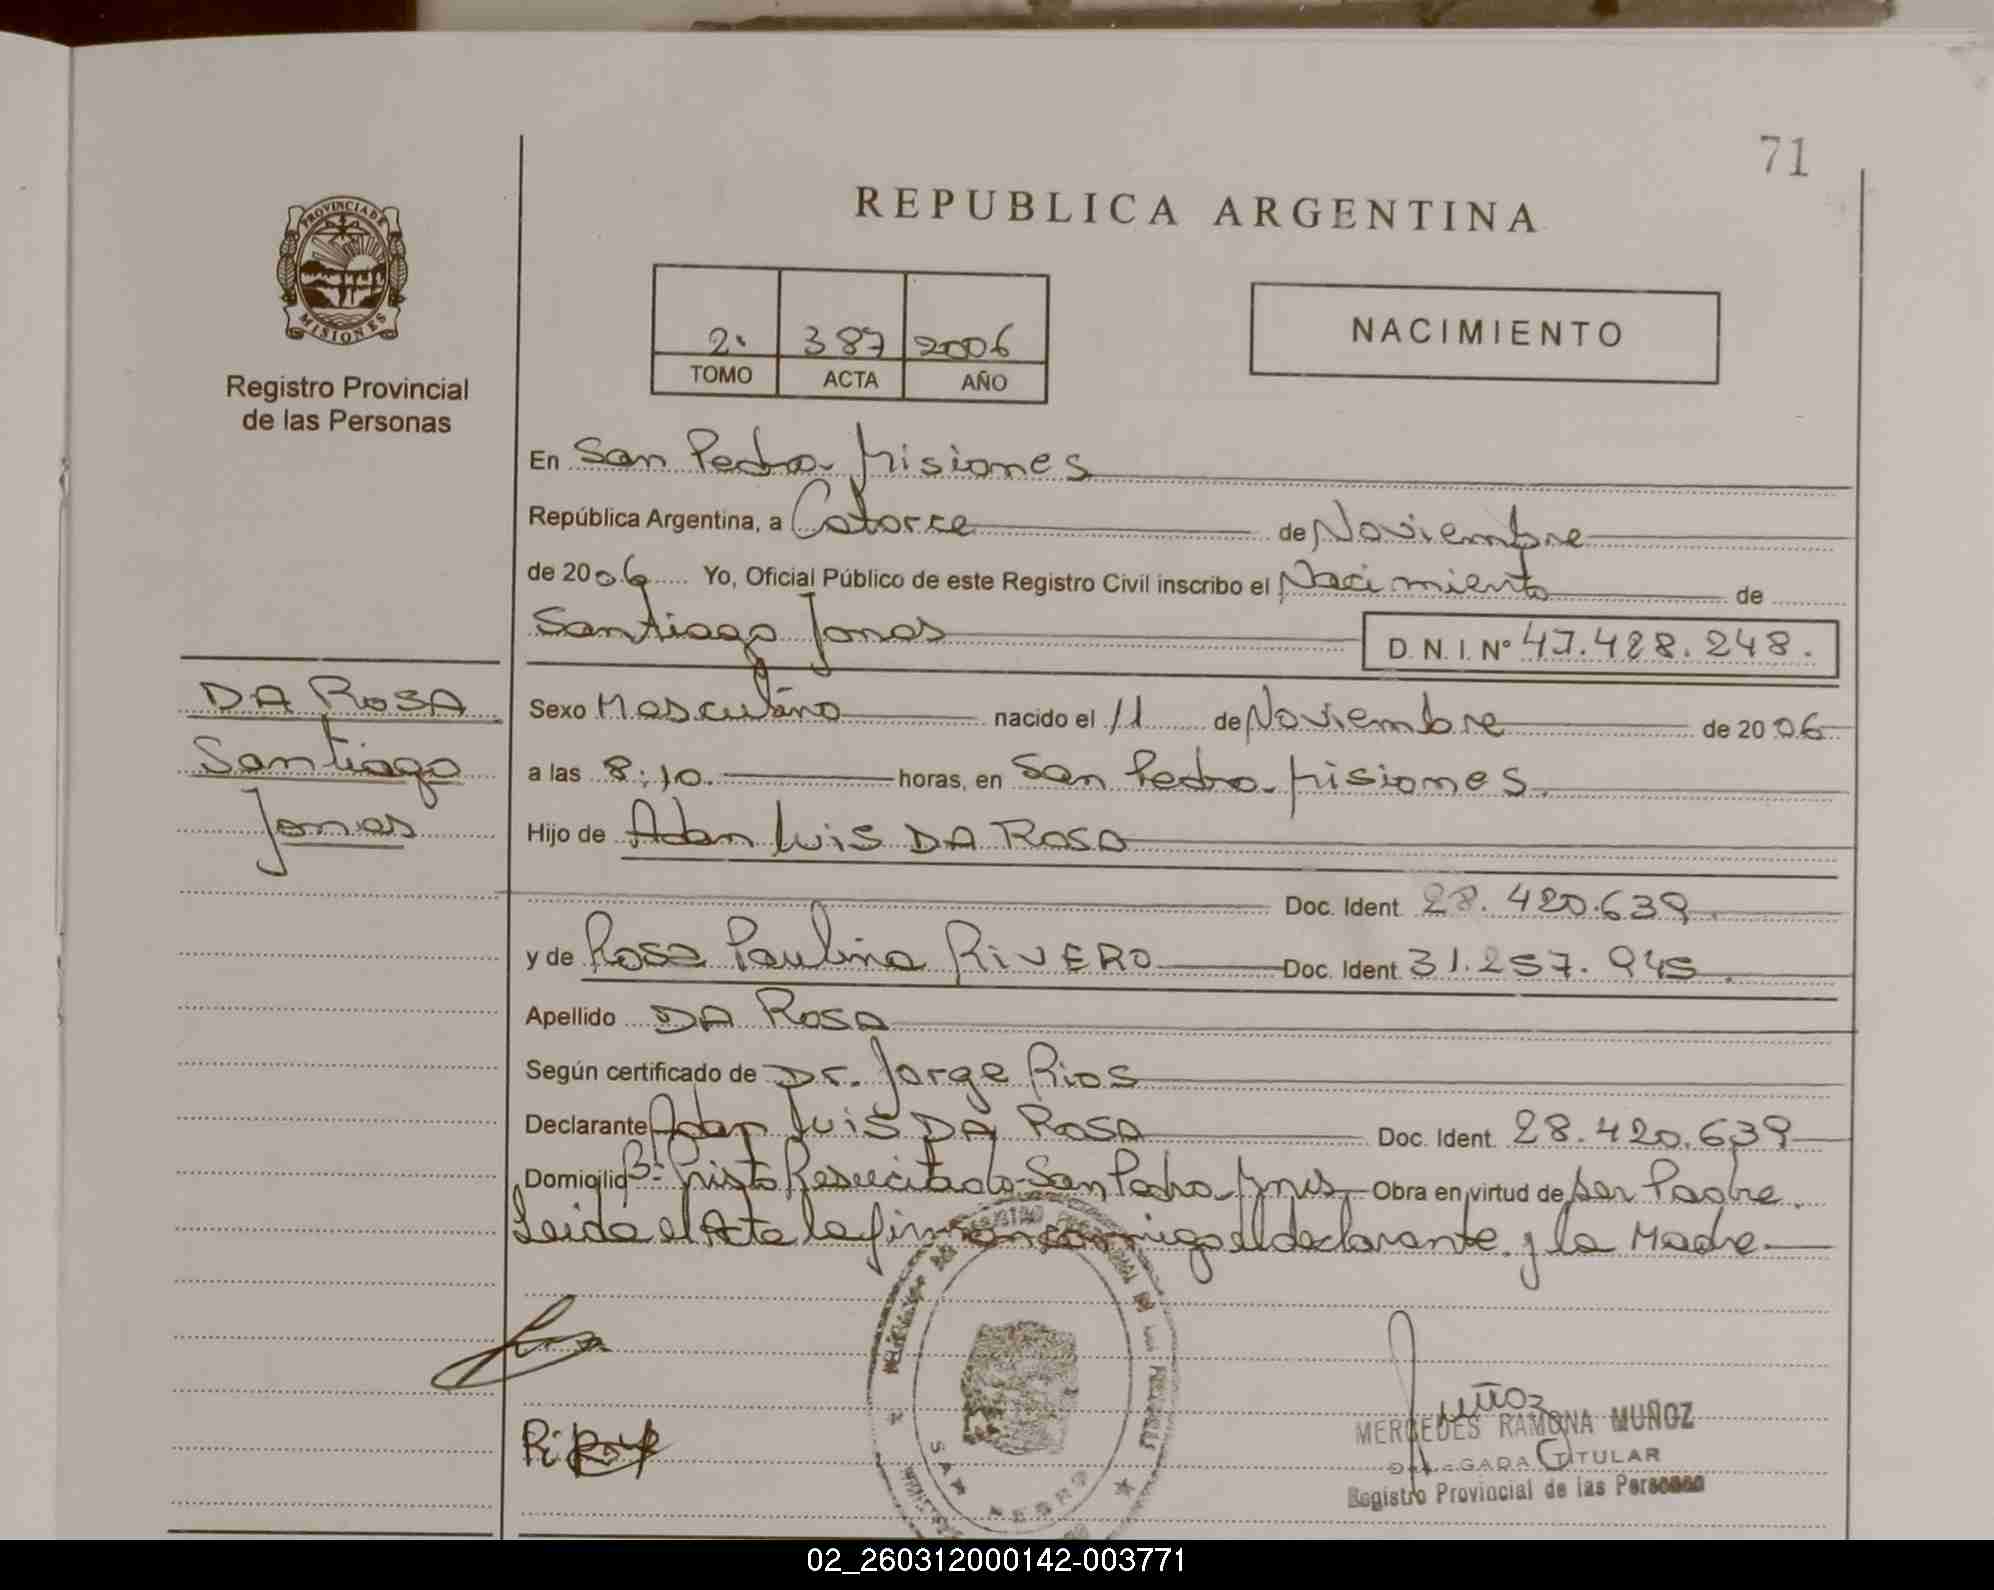 71
REPUBLICA ARGENTINA
PROVINCIA DE
MISIONES
Registro Provincial
de las Personas
2. 387 2006
TOMO ACTA AÑO
NACIMIENTO
En San Pedro - Misiones
República Argentina, a Catorce de Noviembre
de 2006 Yo, Oficial Público de este Registro Civil inscribo el Nacimiento de
Santiago Jonas D. N. I. Nº 47.428.248.
DA ROSA
Santiago
Jonas
Sexo Masculino nacido el 11 de Noviembre de 2006
a las 8:10. horas, en San Pedro - Misiones.
Hijo de Adan Luis DA ROSA
Doc. Ident. 28.420.639.
y de Rosa Paulina RIVERO Doc. Ident. 31.257.945.
Apellido DA ROSA
Según certificado de Dr. Jorge Rios
Declarante Adan Luis DA ROSA Doc. Ident. 28.420.639
Domicilio Bº Cristo Resucitado - San Pedro - Mnes. Obra en virtud de ser Padre.
Leida el Acta la firman conmigo el declarante y la Madre.
SAN PEDRO
Muñoz
MERCEDES RAMONA MUÑOZ
DELEGADA TITULAR
Registro Provincial de las Personas
02_260312000142-003771